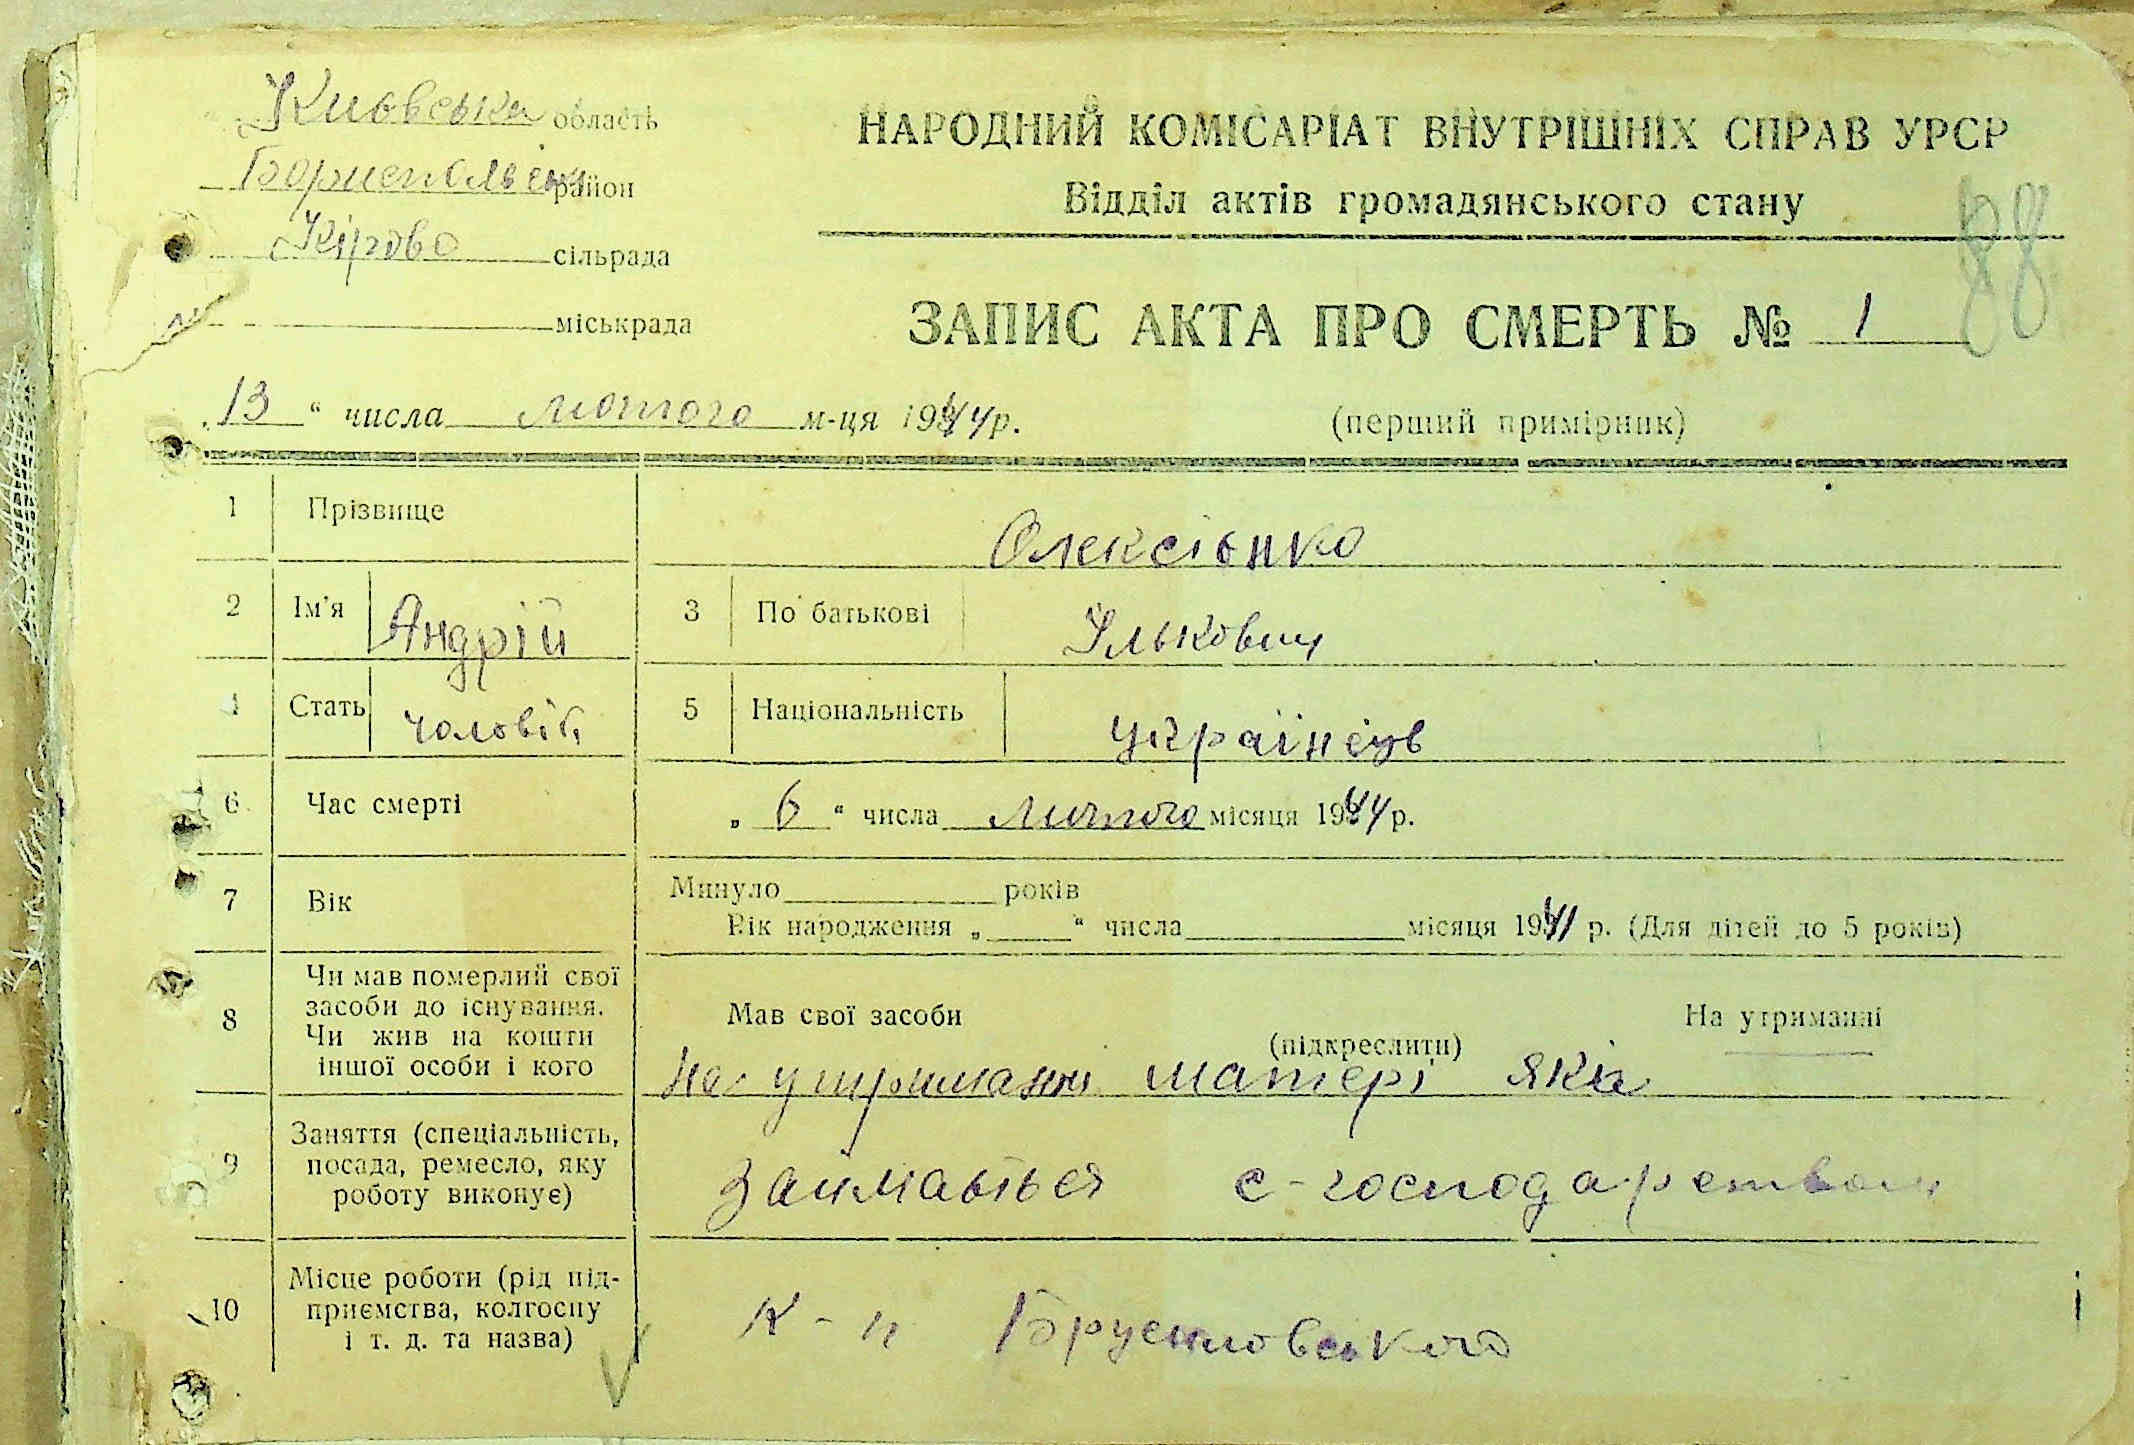 Киовська область
Бориспольськ район
Кірово сільрада
міськрада
НАРОДНИЙ КОМІСАРІАТ ВНУТРІШНІХ СПРАВ УРСР
Відділ актів громадянського стану
88
ЗАПИС АКТА ПРО СМЕРТЬ № 1
„13“ числа лютого м-ця 1944 р.
(перший примірник)
1 Прізвище Олексіѣнко
2 Ім'я Андрій 3 По батькові Ількович
4 Стать чоловік 5 Національність українець
6 Час смерті „6“ числа лютого місяця 1944 р.
7 Вік Минуло років
Рік народження „ “ числа місяця 1941 р. (Для дітей до 5 років)
8 Чи мав померлий свої засоби до існування. Чи жив на кошти іншої особи і кого
Мав свої засоби (підкреслити) На утриманні
На утриманні матері яка
9 Заняття (спеціальність, посада, ремесло, яку роботу виконує)
займається с-господарством
10 Місце роботи (рід підприємства, колгоспу і т. д. та назва)
к-п